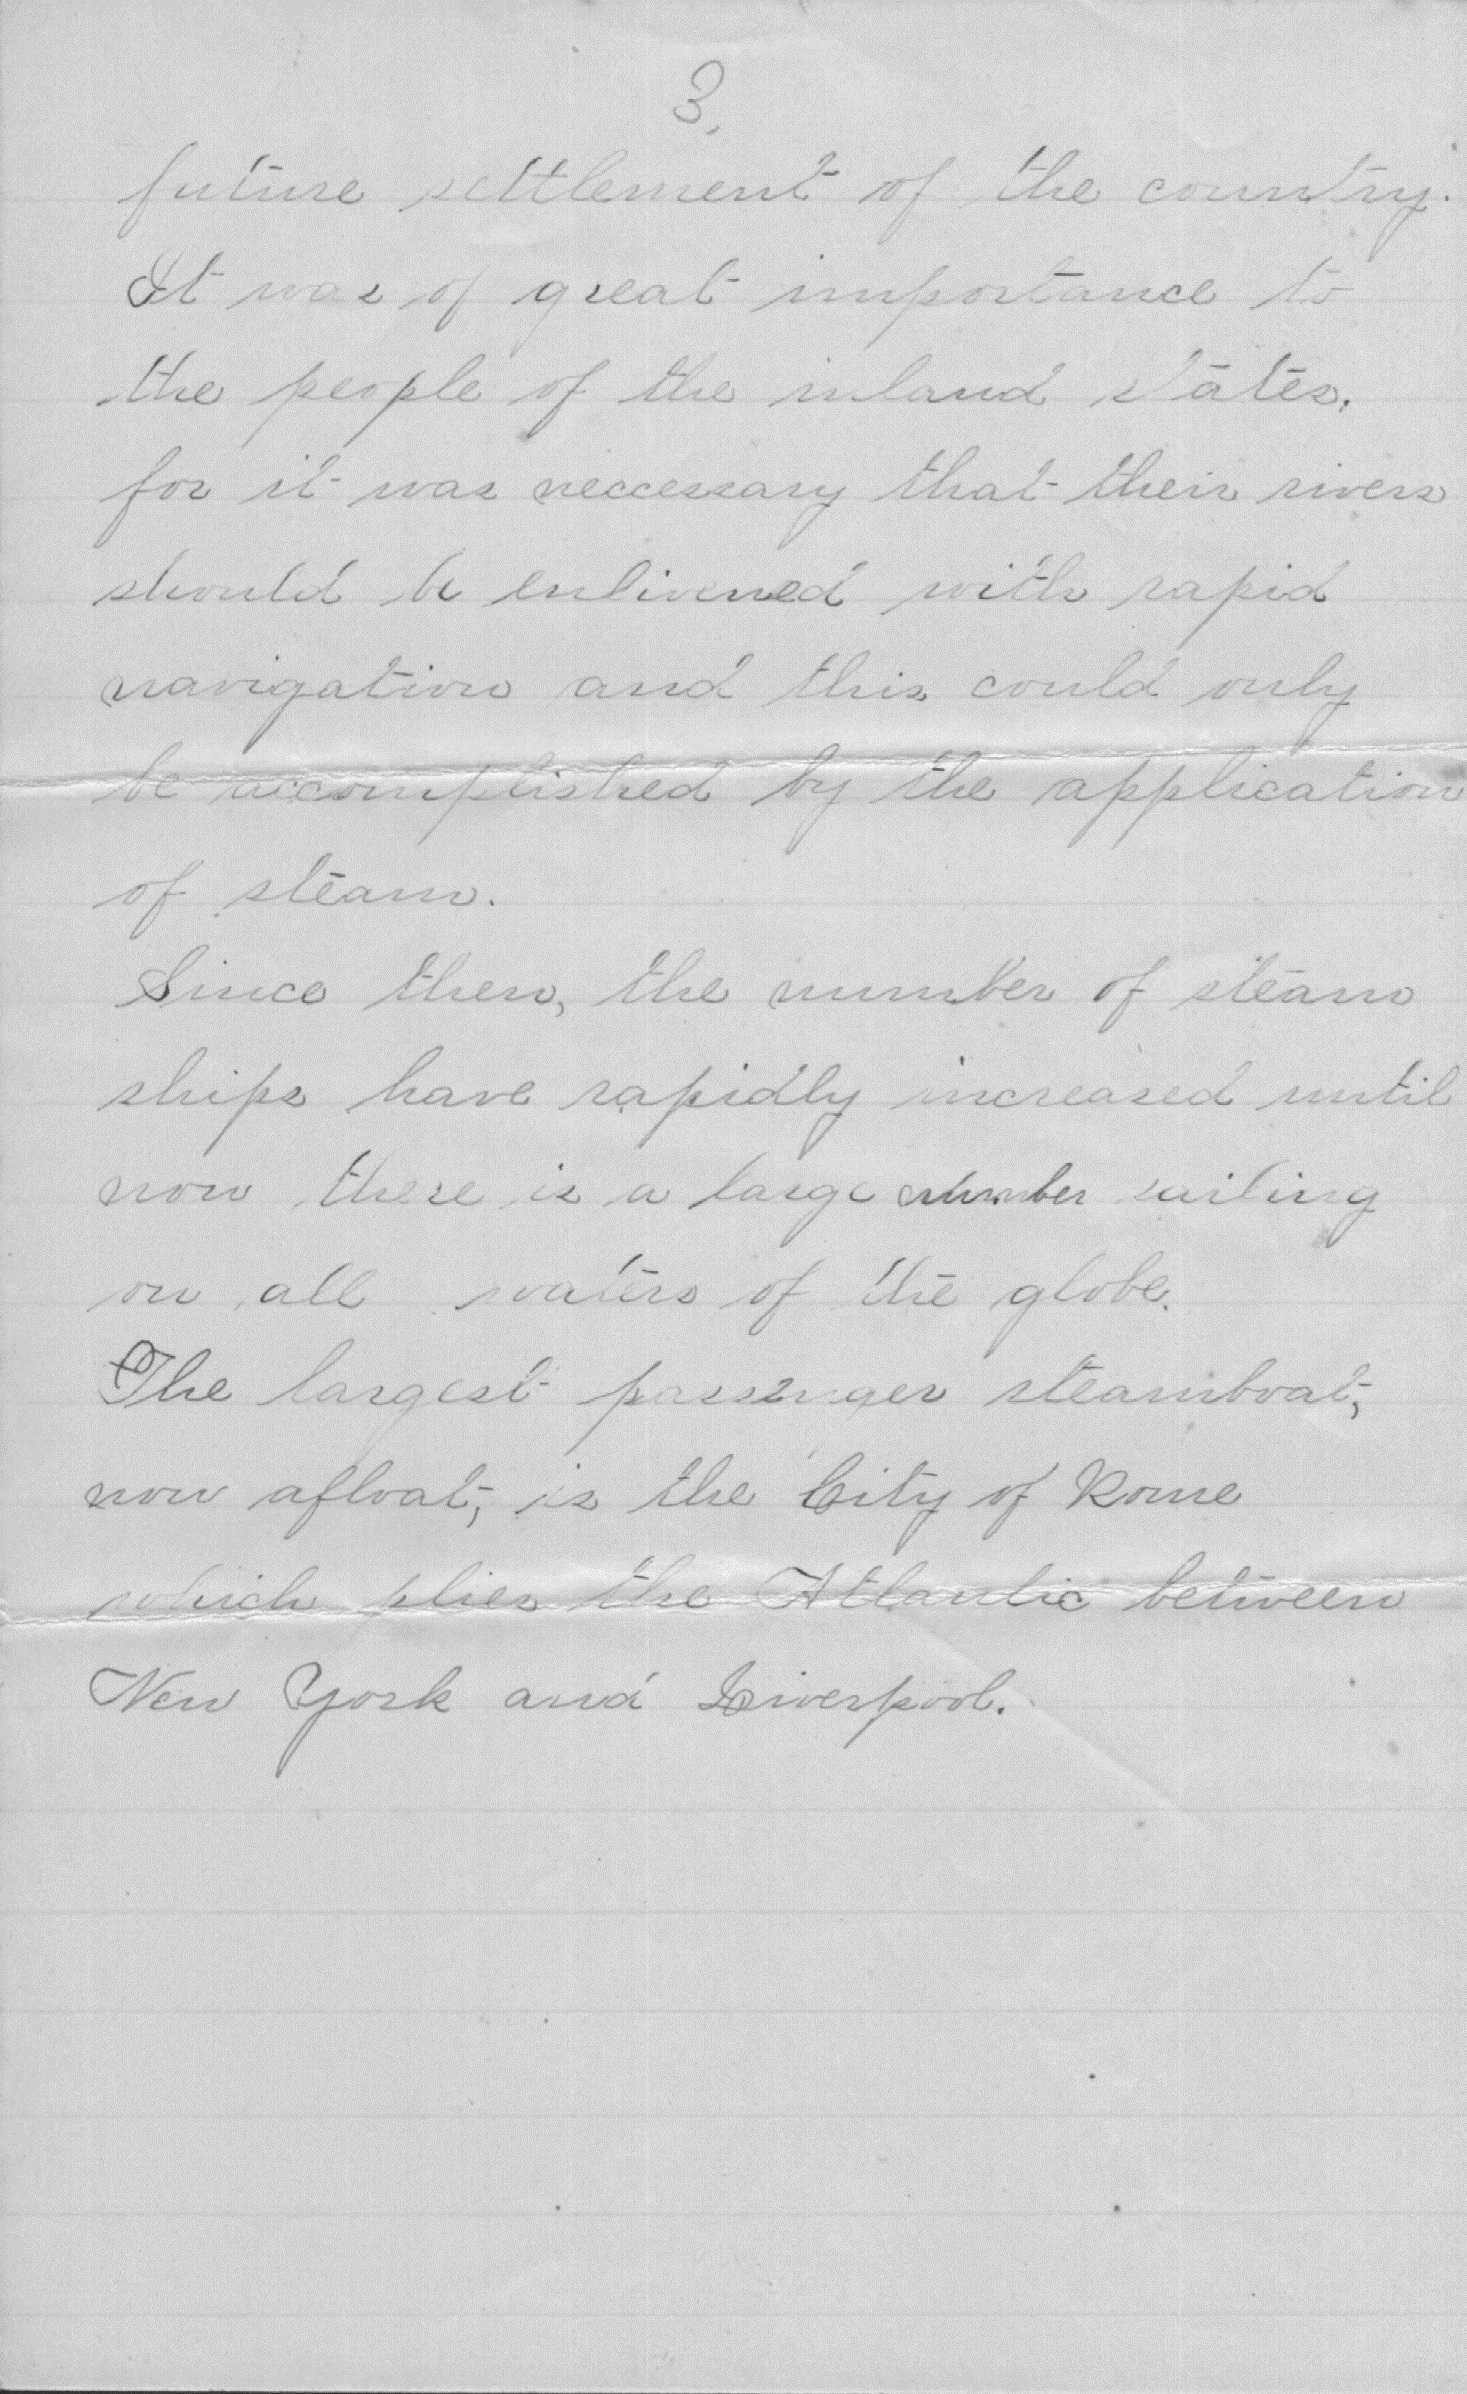 3.
future settlement of the country.
It was of great importance to
the people of the inland states,
for it was neccessary that their rivers
should be enlivened with rapid
navigation and this could only
be accomplished by the application
of steam.
Since then, the number of steam
ships have rapidly increased until
now there is a large number sailing
on all waters of the globe.
The largest passenger steamboat,
now afloat, is the City of Rome
which plies the Atlantic between
New York and Liverpool.